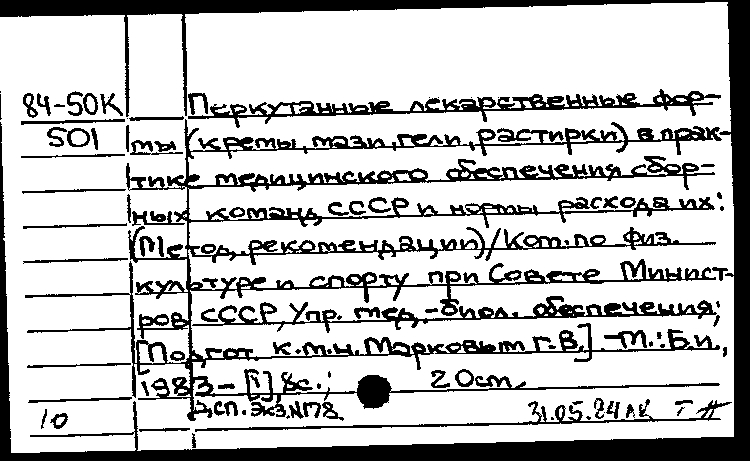 84-50К Перкутанные лекарственные фор-
501 мы (кремы, мази, гели, растирки) в прак-
тике медицинского обеспечения сбор-
ных команд СССР и нормы расхода их:
(Метод. рекомендации)/Ком. по физ.
культуре и спорту при Совете Минист-
ров СССР, Упр. мед.-биол. обеспечения;
[Подгот. к.м.н. Марковым Г.В.] - М.: Б.и.,
1983 - [1], 8с.; 20см.
Д.сп. Экз. №178
10 31.05.84